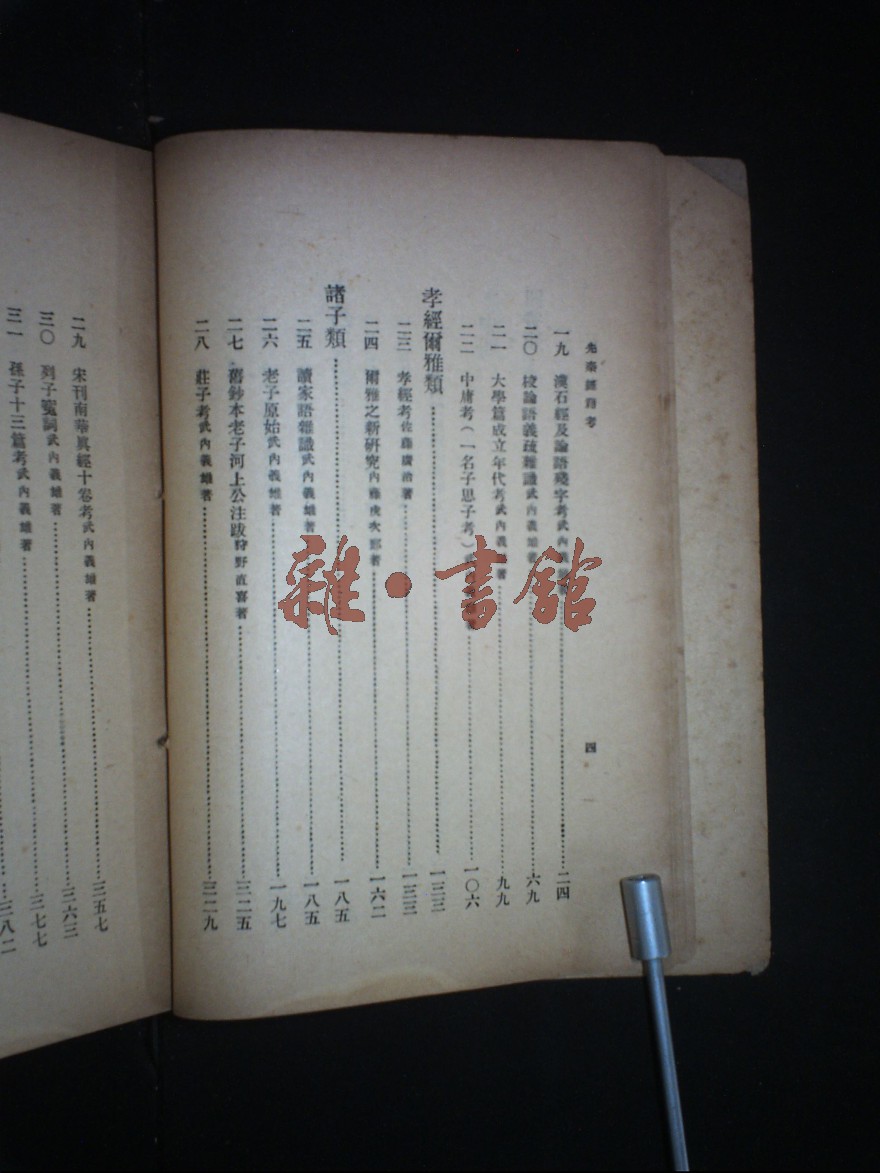 先秦經籍考
四
一九 漢石經及論語殘字考武內義雄著……二四
二〇 校論語義疏雜識武內義雄著……六九
二一 大學篇成立年代考武內義 著……九九
二二 中庸考(一名子思子考) 著……一〇六
孝經爾雅類……一三三
二三 孝經考佐藤廣治著……一三三
二四 爾雅之新研究內藤虎次郎著……一六二
諸子類……一八五
二五 讀家語雜識武內義雄著……一八五
二六 老子原始武內義雄著……一九七
二七 舊鈔本老子河上公注跋狩野直喜著……三二五
二八 莊子考武內義雄著……三二九
二九 宋刊南華眞經十卷考武內義雄著……三五七
三〇 列子寃詞武內義雄著……三六三
三一 孫子十三篇考武內義雄著……三八二
雜·書館